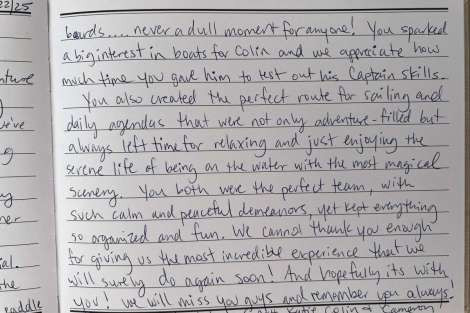 22/25
nture
)
we've
g
y
ner
ial.
the
paddle
boards.... never a dull moment for anyone! You sparked
a big interest in boats for Colin and we appreciate how
much time you gave him to test out his Captain skills.
You also created the perfect route for sailing and
daily agendas that were not only adventure-filled but
always left time for relaxing and just enjoying the
serene life of being on the water with the most magical
scenery. You both were the perfect team, with
such calm and peaceful demeanors, yet kept everything
so organized and fun. We cannot thank you enough
for giving us the most incredible experience that we
will surely do again soon! And hopefully its with
you! We will miss you guys and remember you always!
Katie Colin & Cameron